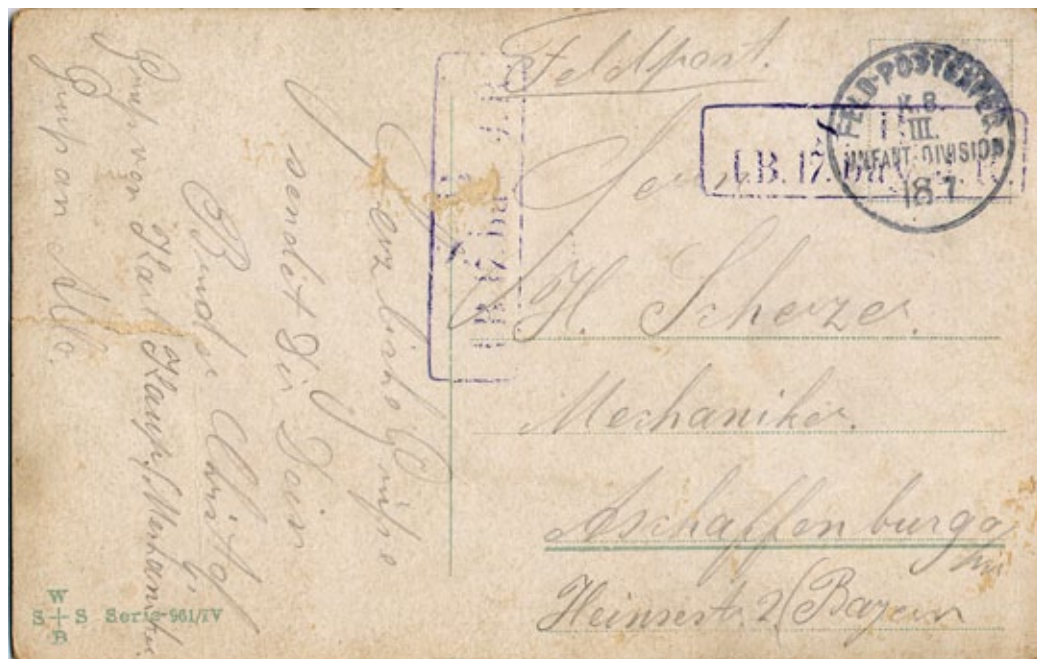 Feldpost.
FELD-POSTEXPED.
K.B.
III.
INFANT. DIVISION
18 7
I.B. 17.
Herrn
H. Scherzer.
Mechaniker.
Aschaffenburg a/
Heinsestr. 2 (Bayern
Herzliche Grüße
sendet Dir Dein
Bruder Christof
Gruß von Karl Mechaniker
Gruß an Alle.
W
S+S Serie 961/IV
B
I.B. 17.